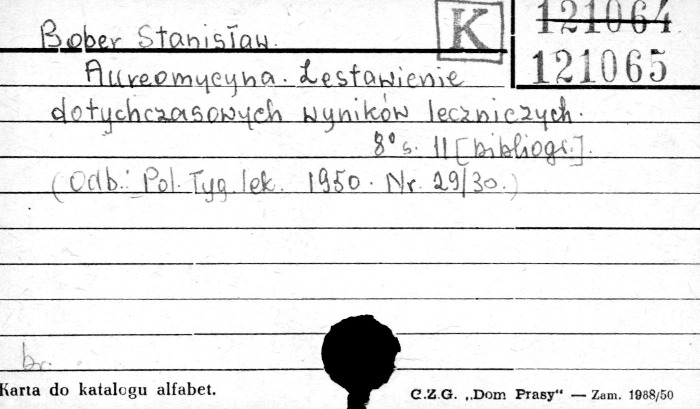 Bober Stanisław.
K
121064
121065
Aureomycyna. Zestawienie
dotychczasowych wyników leczniczych.
8° s. 11 [bibliogr.].
(Odb.: Pol. Tyg. lek. 1950. Nr. 29/30.)
br.
Karta do katalogu alfabet.
C.Z.G. „Dom Prasy" — Zam. 1988/50